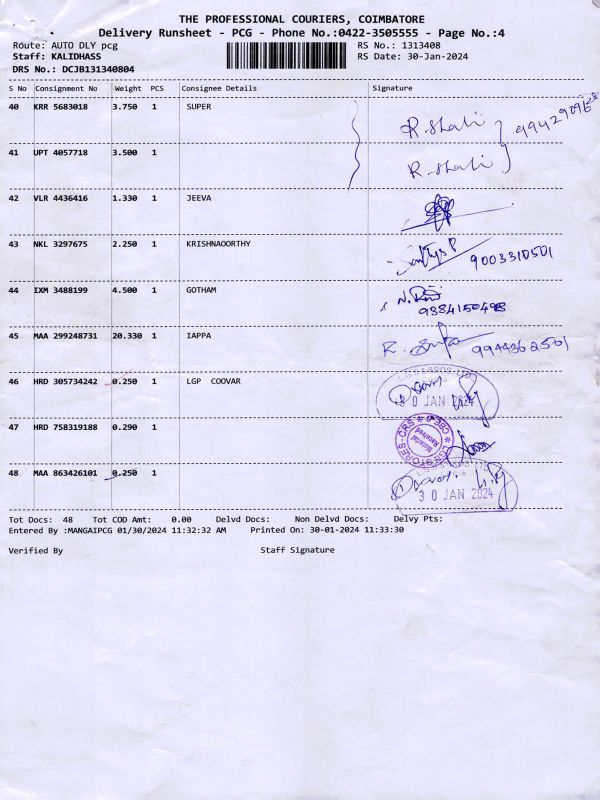 THE PROFESSIONAL COURIERS, COIMBATORE
Delivery Runsheet - PCG - Phone No.:0422-3505555 - Page No.:4
Route: AUTO DLY pcg RS No.: 1313408
Staff: KALIDHASS RS Date: 30-Jan-2024
DRS No.: DCJB131340804
S No Consignment No Weight PCS Consignee Details Signature
40 KRR 5683018 3.750 1 SUPER R.Shali
41 UPT 4057718 3.500 1 R.Shali
42 VLR 4436416 1.330 1 JEEVA
43 NKL 3297675 2.250 1 KRISHNAOORTHY 9003310501
44 IXM 3488199 4.500 1 GOTHAM
9384150498
45 MAA 299248731 20.330 1 IAPPA 9944362501
46 HRD 305734242 0.250 1 LGP COOVAR
30 JAN 2024
47 HRD 758319188 0.290 1
48 MAA 863426101 0.250 1
30 JAN 2024
Tot Docs: 48 Tot COD Amt: 0.00 Delvd Docs: Non Delvd Docs: Delvy Pts:
Entered By :MANGAIPCG 01/30/2024 11:32:32 AM Printed On: 30-01-2024 11:33:30
Verified By Staff Signature